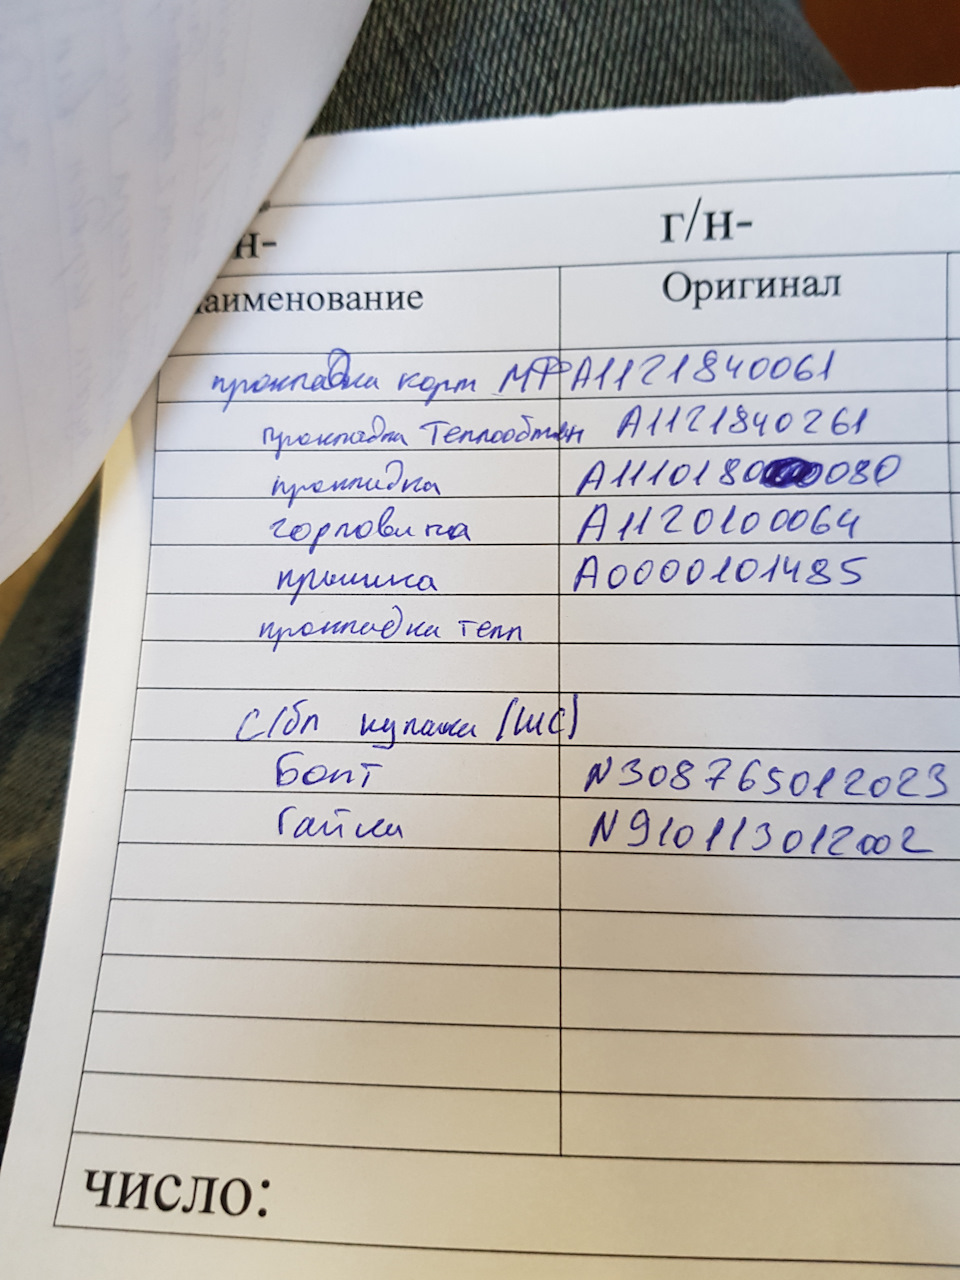 н- г/н-
аименование Оригинал
прокладка корп МФ A1121840061
прокладка Теплообмен A1121840261
прокладка A1110180080
горловина A1120100064
крышка A0000101485
прокладка тепл
С/бл кулака (ШС)
Болт N308765012023
Гайка N910113012002
число: